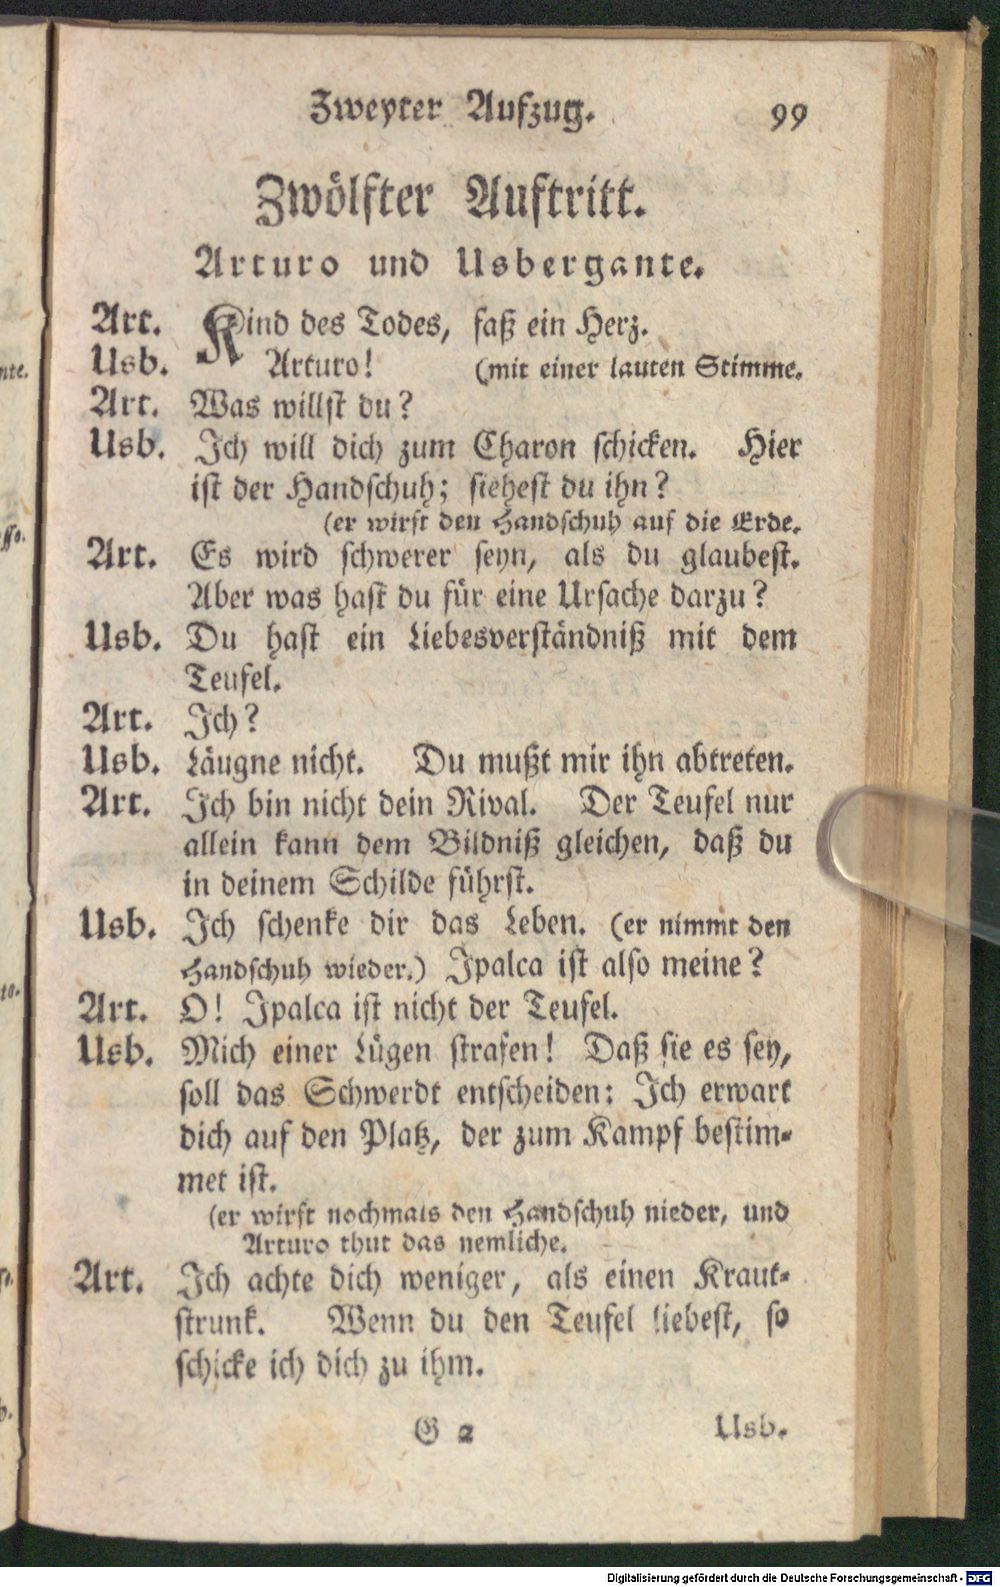 Zweyter Aufzug. 99
Zwölfter Auftritt.
Arturo und Usbergante.
Art. Kind des Todes, faß ein Herz.
Usb. Arturo! (mit einer lauten Stimme.
Art. Was willst du?
Usb. Ich will dich zum Charon schicken. Hier
ist der Handschuh; siehest du ihn?
(er wirft den Handschuh auf die Erde.
Art. Es wird schwerer seyn, als du glaubest.
Aber was hast du für eine Ursache darzu?
Usb. Du hast ein Liebesverständniß mit dem
Teufel.
Art. Ich?
Usb. Läugne nicht. Du mußt mir ihn abtreten.
Art. Ich bin nicht dein Rival. Der Teufel nur
allein kann dem Bildniß gleichen, daß du
in deinem Schilde führst.
Usb. Ich schenke dir das Leben. (er nimmt den
Handschuh wieder.) Ipalca ist also meine?
Art. O! Ipalca ist nicht der Teufel.
Usb. Mich einer Lügen strafen! Daß sie es sey,
soll das Schwerdt entscheiden: Ich erwart
dich auf den Platz, der zum Kampf bestim-
met ist.
(er wirft nochmals den Handschuh nieder, und
Arturo thut das nemliche.
Art. Ich achte dich weniger, als einen Kraut-
strunk. Wenn du den Teufel liebest, so
schicke ich dich zu ihm.
G 2 Usb.
Digitalisierung gefördert durch die Deutsche Forschungsgemeinschaft - DFG